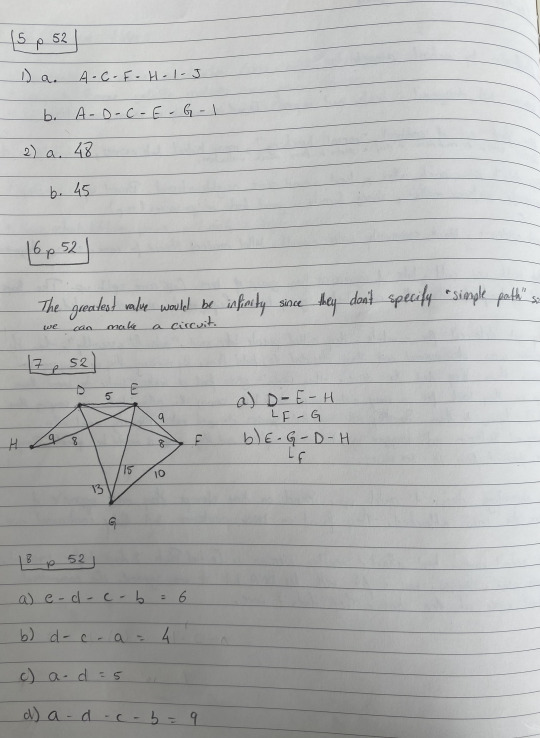 5 p 52
1) a. A-C-F-H-I-J
b. A-D-C-E-G-I
2) a. 48
b. 45
6 p 52
The greatest value would be infinity since they don't specify "simple path" so
we can make a circuit.
7 p 52
D 5 E
9
H 9 8 8 F
15 10
13
G
a) D-E-H
F-G
b) E-G-D-H
F
8 p 52
a) e-d-c-b = 6
b) d-c-a = 4
c) a-d = 5
d) a-d-c-b = 9